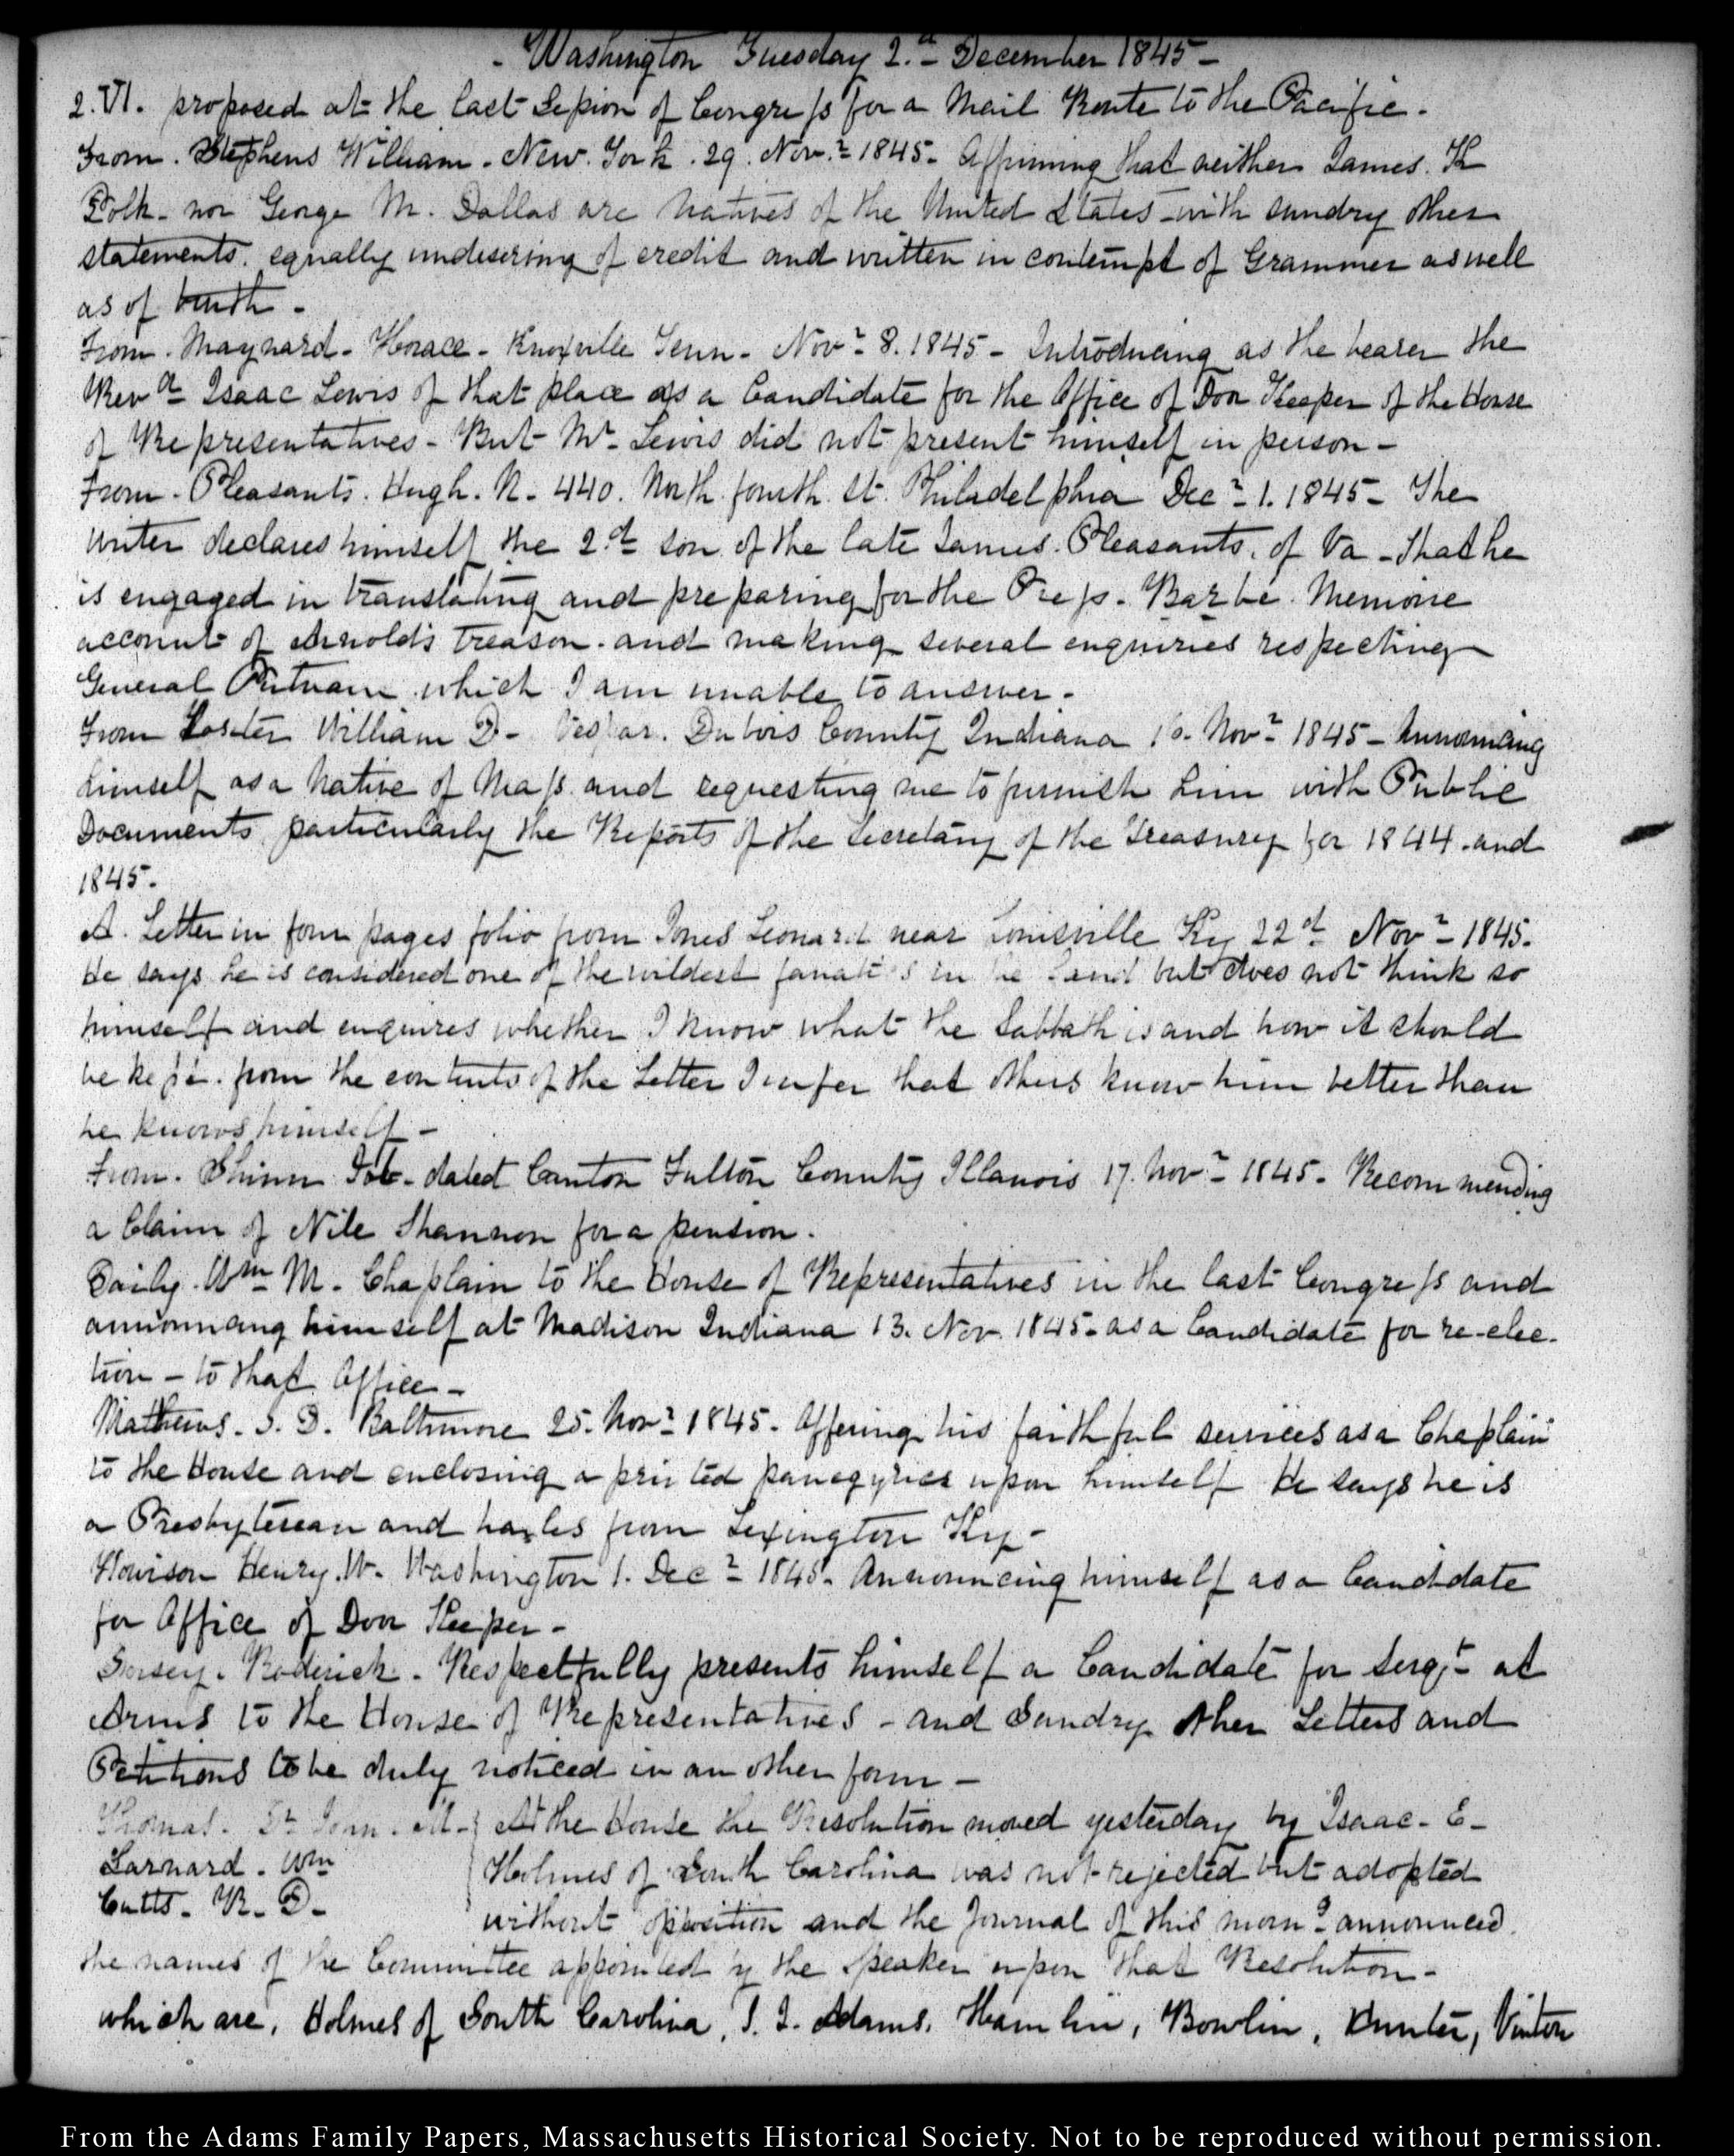 - Washington Tuesday 2.d December 1845 -
2. VI. proposed at the last Session of Congress for a Mail Route to the Pacific.
From. Stephens William. New. York. 29. Novr. 1845. Affirming that neither James. K
Polk. nor George M. Dallas are Natives of the United States - with sundry other
statements. equally undeserving of credit and written in contempt of Grammer as well
as of truth -
From. Maynard. Horace. Knoxville Tenn. Novr. 8. 1845 - Introducing as the bearer the
Revd. Isaac Lewis of that place as a Candidate for the Office of Door Keeper of the House
of Representatives - But Mr. Lewis did not present himself in person -
From. Pleasants. Hugh. R. 440. North. fourth. St. Philadelphia Decr. 1. 1845 - The
writer declares himself the 2.d son of the late James. Pleasants. of Va - That he
is engaged in translating and preparing for the Press. Barbé. Memoire
account of Arnold's treason. and making several enquiries respecting
General Putnam which I am unable to answer.
From William D - Dubois County Indiana Novr. 1845 - Announcing
himself as a Native of Mass. and requesting me to furnish him with Public
Documents particularly the Reports of the Secretary of the Treasury for 1844. and
1845.
A. Letter in four pages folio from Jones Leonard near Louisville Ky 22d. Novr. 1845.
He says he is considered one of the wildest fanatics in the land but does not think so
himself and enquires whether I know what the Sabbath is and how it should
be kept. from the contents of the Letter I infer that others know him better than
he knows himself -
From. Shinn Job - dated Canton Fulton County Illanois 17. Novr. 1845. Recommending
a Claim of Nile Shannon for a pension.
Daily. Wm. M. Chaplain to the House of Representatives in the last Congress and
announcing himself at Madison Indiana 13. Nov. 1845. as a Candidate for re-elec-
tion - to that Office -
Mathews. J. D. Baltimore 25. Novr. 1845. Offering his faithful services as a Chaplain
to the House and enclosing a printed panegyrick upon himself He says he is
a Presbyterean and hailes from Lexington Ky -
Howison Henry. W. Washington 1. Decr. 1845. Announcing himself as a Candidate
for Office of Door Keeper -
Dorsey. Roderick. Respectfully presents himself a Candidate for Sergt. at
Arms to the House of Representatives - and Sundry other Letters and
Petitions to be duly noticed in an other form -
Thomas. Dr John. M. } At the House the Resolution moved yesterday by Isaac. E -
Larnard. Wm Holmes of South Carolina was not rejected but adopted
Cutts. R. D. without opposition and the Journal of this morng. announced
the names of the Committee appointed by the Speaker upon that Resolution -
which are, Holmes of South Carolina, J. Q. Adams. Hamlin, Bowlin, Hunter, Vinton
From the Adams Family Papers, Massachusetts Historical Society. Not to be reproduced without permission.